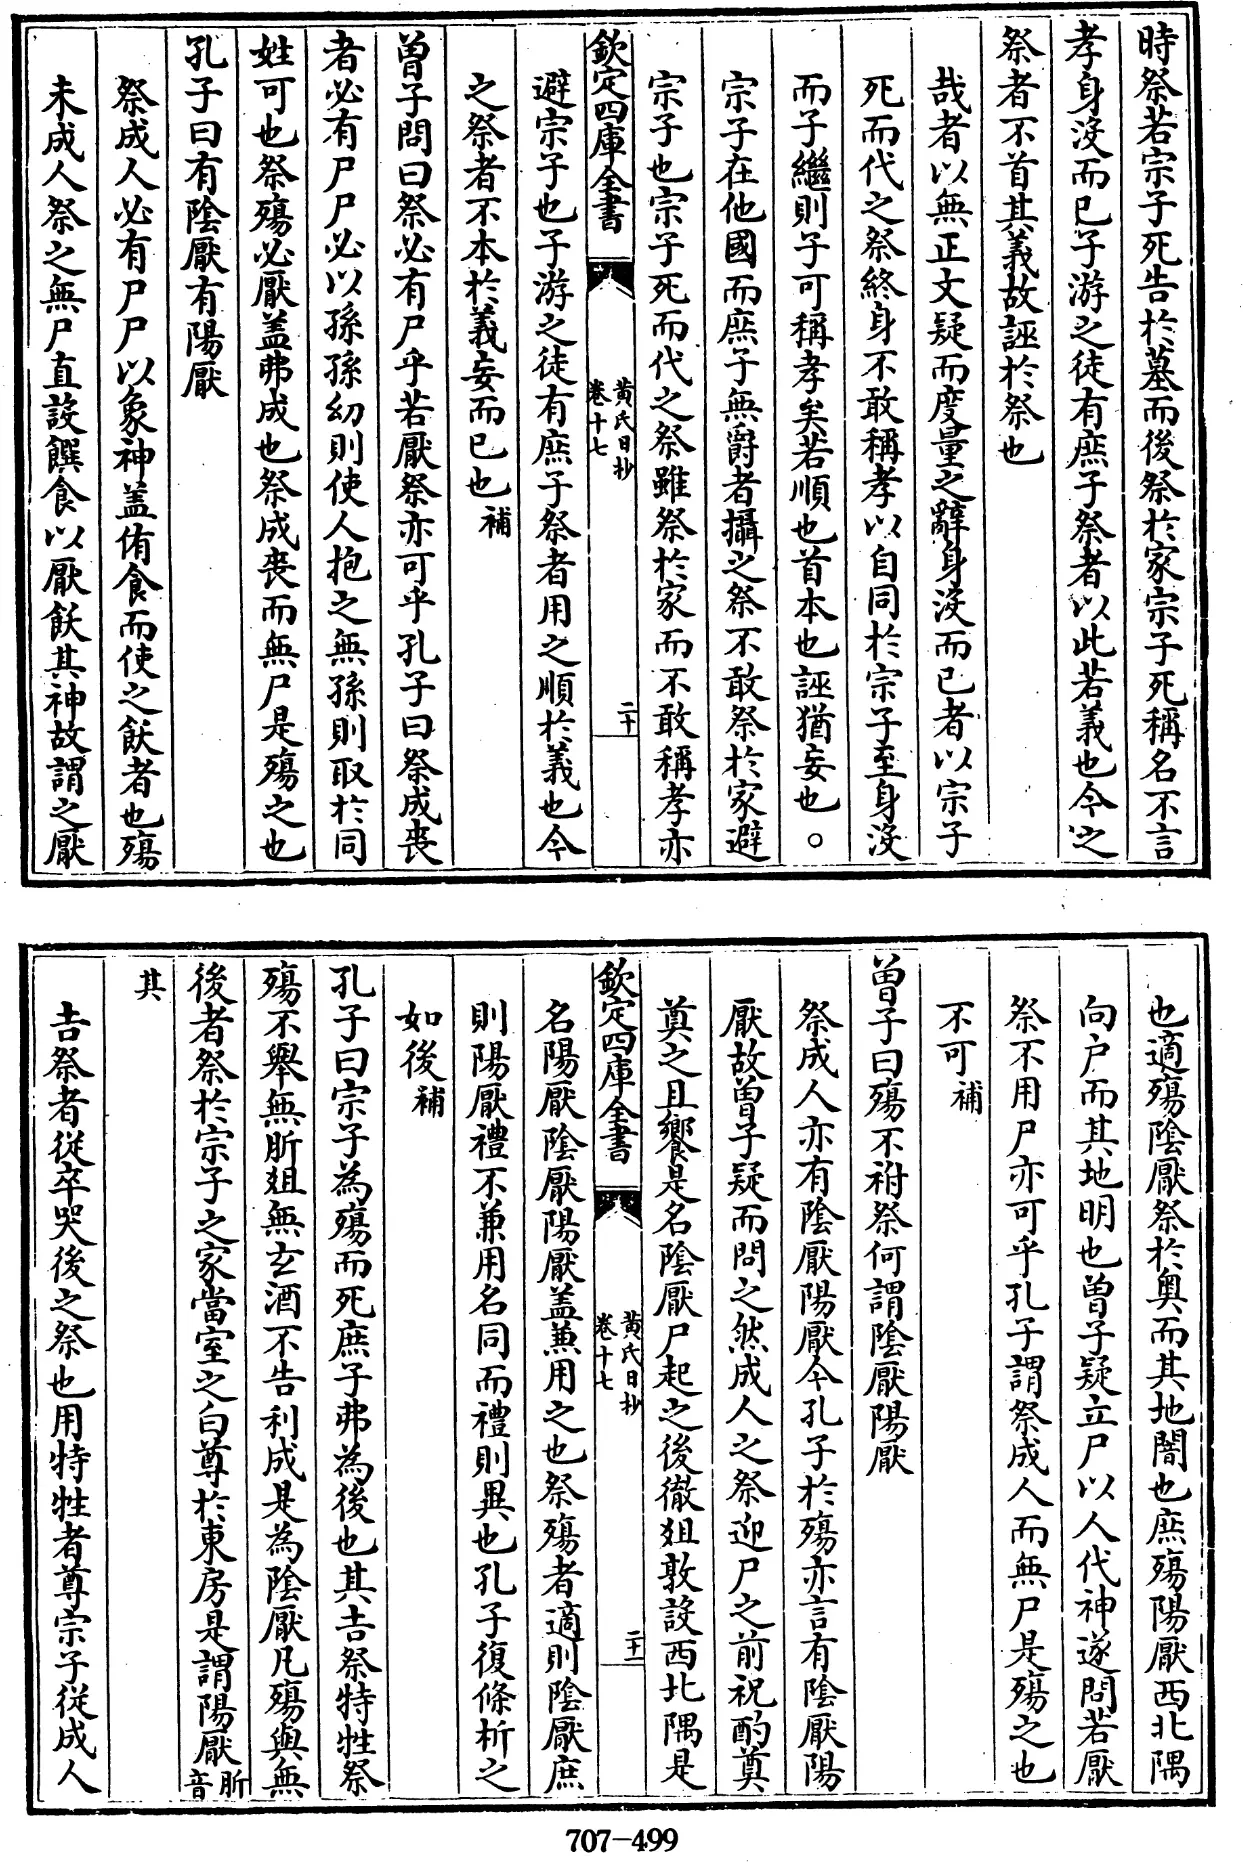 時祭若宗子死告於墓而後祭於家宗子死稱名不言
孝身沒而已子游之徒有庶子祭者以此若義也今之
祭者不首其義故誣於祭也
哉者以無正文疑而度量之辭身沒而已者以宗子
死而代之祭終身不敢稱孝以自同於宗子至身沒
而子繼則子可稱孝矣若順也首本也誣猶妄也。
宗子在他國而庶子無爵者攝之祭不敢祭於家避
宗子也宗子死而代之祭雖祭於家而不敢稱孝亦
欽定四庫全書
黄氏日抄
卷十七
二十
避宗子也子游之徒有庶子祭者用之順於義也今
之祭者不本於義妄而已也補
曽子問曰祭必有尸乎若厭祭亦可乎孔子曰祭成喪
者必有尸尸必以孫孫幼則使人抱之無孫則取於同
姓可也祭殤必厭盖弗成也祭成喪而無尸是殤之也
孔子曰有陰厭有陽厭
祭成人必有尸尸以象神盖侑食而使之飫者也殤
未成人祭之無尸直設饌食以厭飫其神故謂之厭
也適殤陰厭祭於奥而其地闇也庶殤陽厭西北隅
向户而其地明也曽子疑立尸以人代神遂問若厭
祭不用尸亦可乎孔子謂祭成人而無尸是殤之也
不可補
曽子曰殤不祔祭何謂陰厭陽厭
祭成人亦有陰厭陽厭今孔子於殤亦言有陰厭陽
厭故曽子疑而問之然成人之祭迎尸之前祝酌奠
奠之且饗是名陰厭尸起之後徹俎敦設西北隅是
欽定四庫全書
黄氏日抄
卷十七
二十一
名陽厭陰厭陽厭盖兼用之也祭殤者適則陰厭庶
則陽厭禮不兼用名同而禮則異也孔子復條析之
如後補
孔子曰宗子為殤而死庶子弗為後也其吉祭特牲祭
殤不舉無肵俎無玄酒不告利成是為陰厭凡殤與無
後者祭於宗子之家當室之白尊於東房是謂陽厭肵音
其
吉祭者從卒哭後之祭也用特牲者尊宗子從成人
707-499